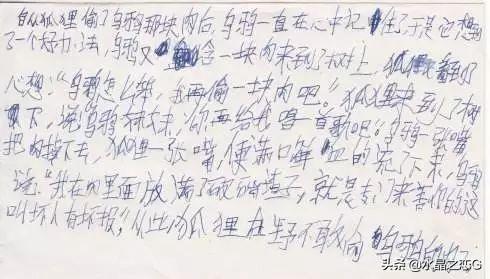 自从狐狸偷了乌鸦那块肉后,乌鸦一直在心中记住了于是它想到
了一个好办法,乌鸦又含一块肉来到了树上,狐狸看到了
心想:“乌鸦怎么笨,我再偷一块肉吧。”狐狸来到了树
下,说:乌鸦你再给我唱一首歌吧。”乌鸦一张嘴
把肉掉下去,狐狸一张嘴,便满口鲜血的流了下来,乌鸦
说:“我在肉里面放满了玻璃渣子,就是专门来害你的这
叫坏人有坏报”从此狐狸在也不敢向乌鸦
头条@水晶之恋G